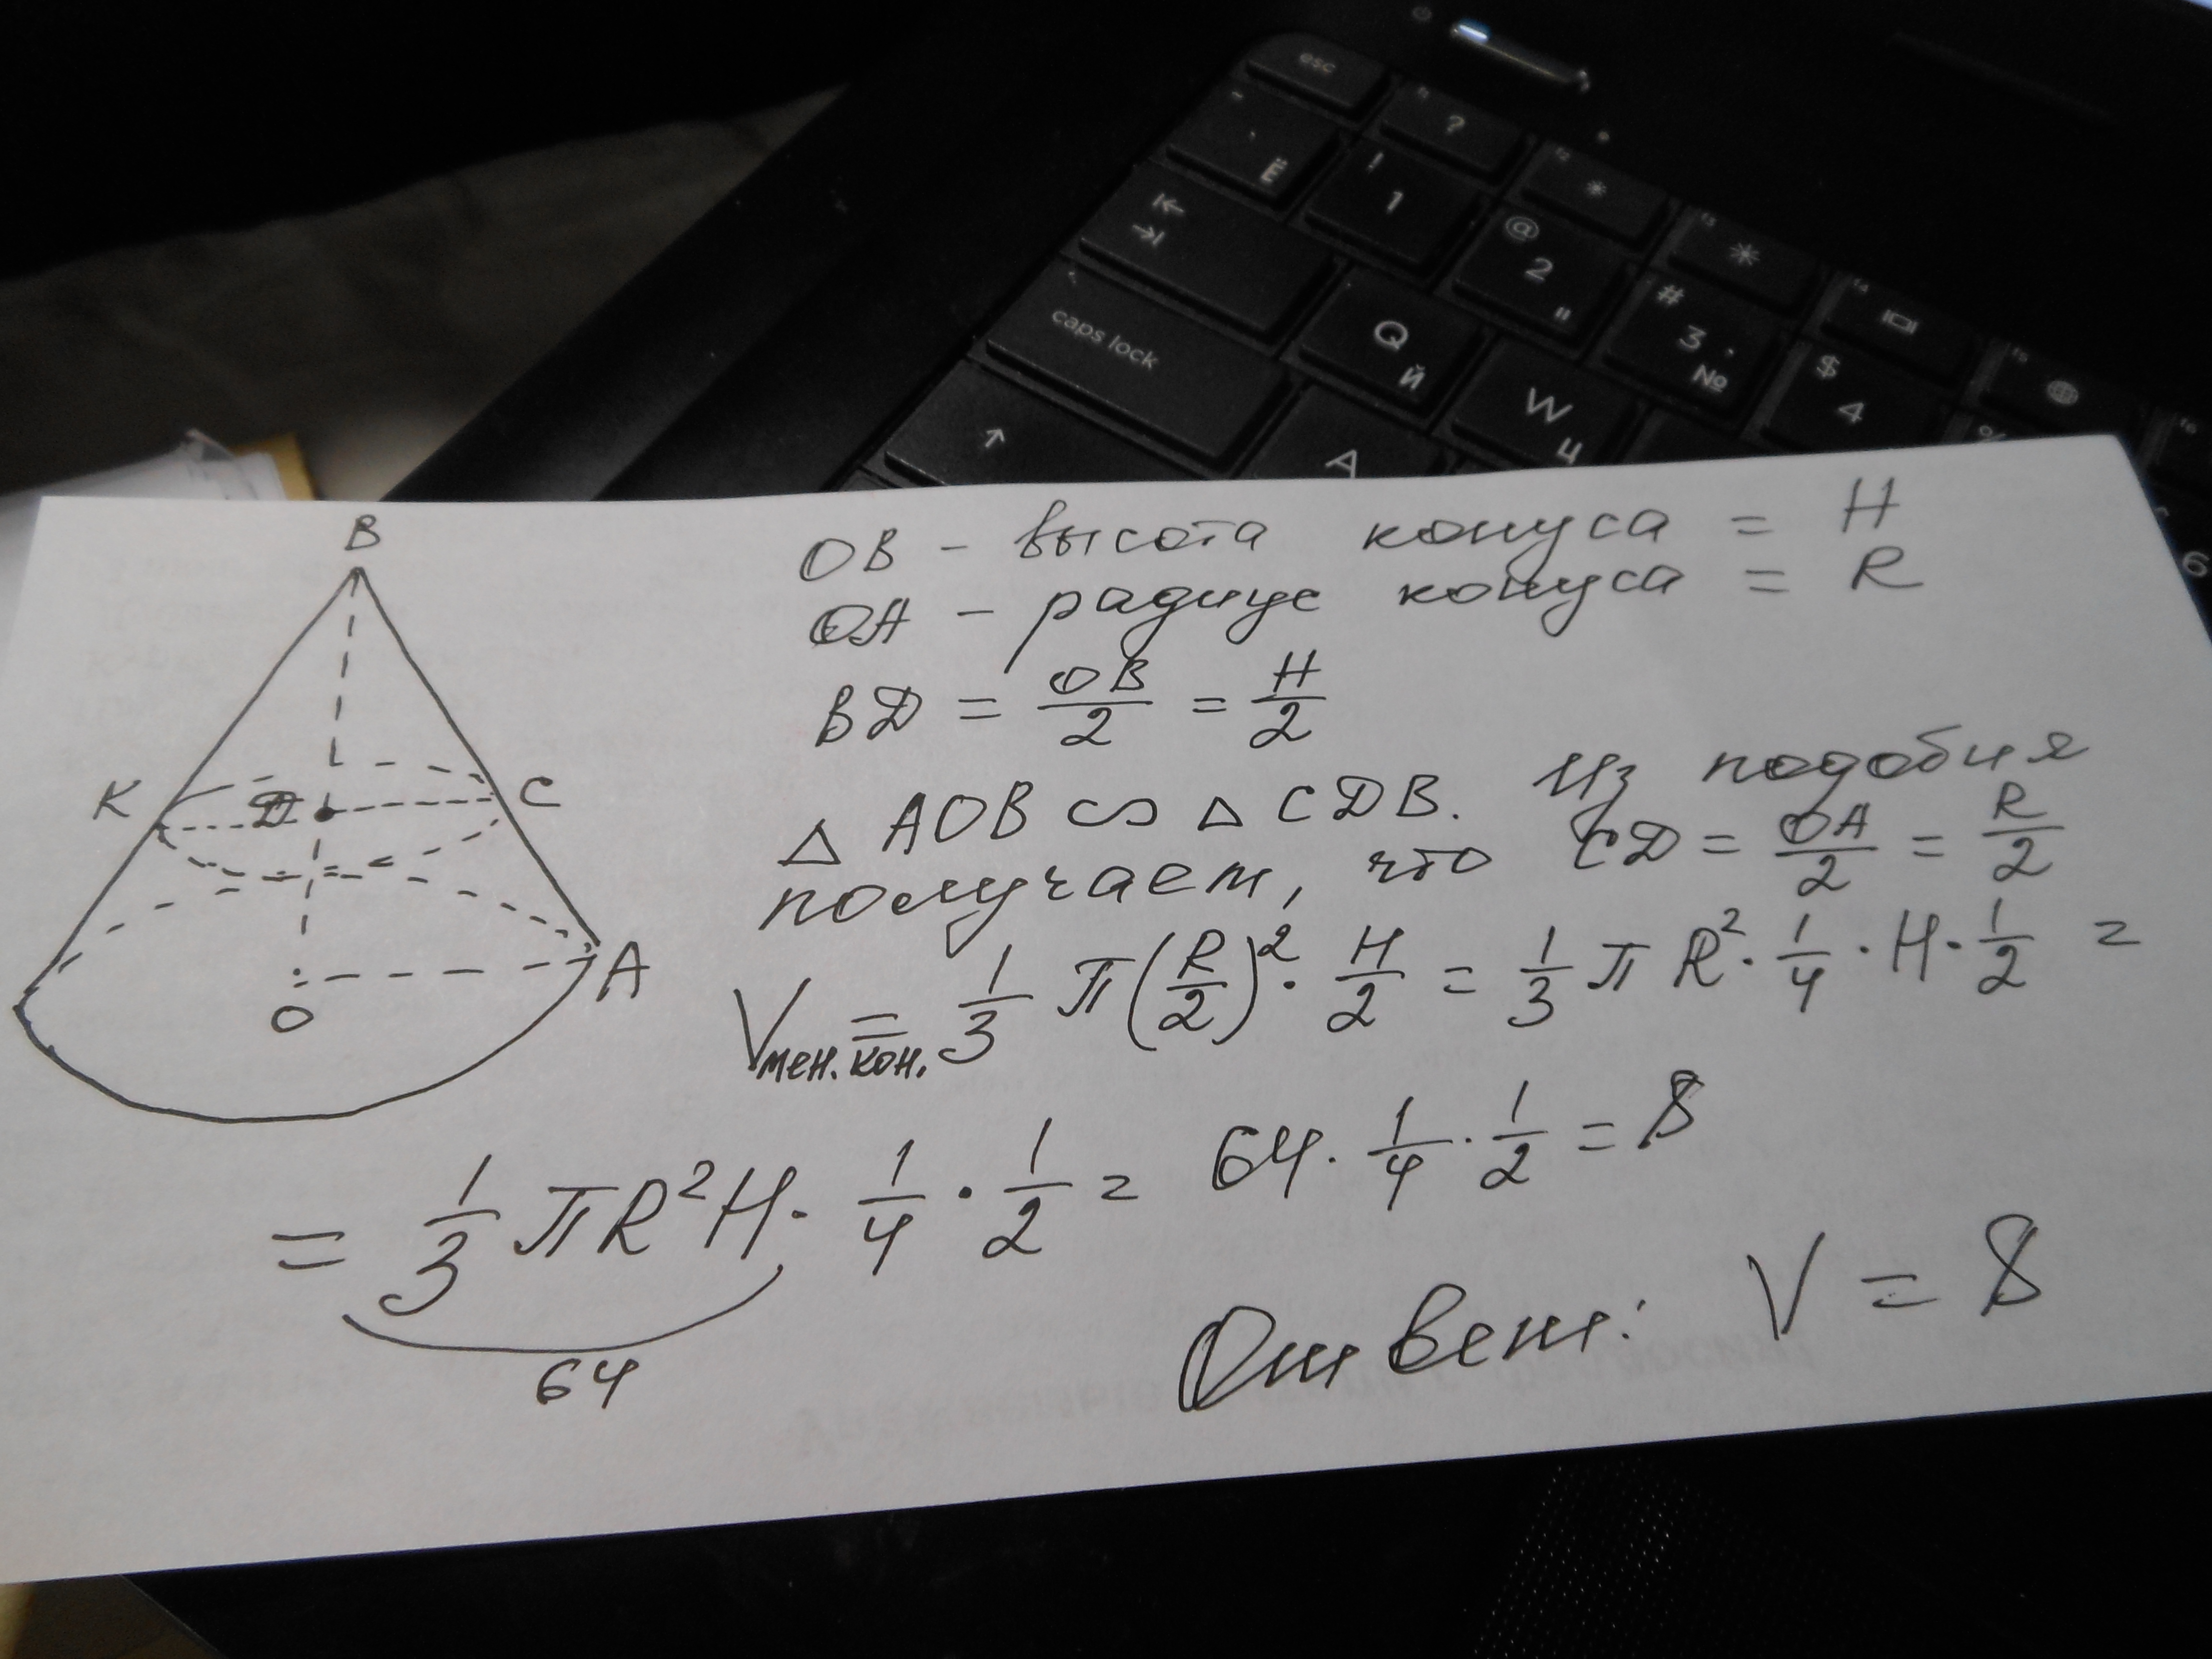 esc
?
*
*
~
`
Ё
!
1
@
2
"
#
3
№
$
4
%
6
caps lock
Q
Й
W
Ц
A
B
K
D
C
O
A
OB - высота конуса = H
OA - радиус конуса = R
BD = OB/2 = H/2
△ AOB ∽ △ CDB. Из подобия
получаем, что CD = OA/2 = R/2
V мен. кон. = 1/3 π(R/2)² · H/2 = 1/3 π R² · 1/4 · H · 1/2 =
= 1/3 πR²H · 1/4 · 1/2 = 64 · 1/4 · 1/2 = 8
64
Ответ: V = 8